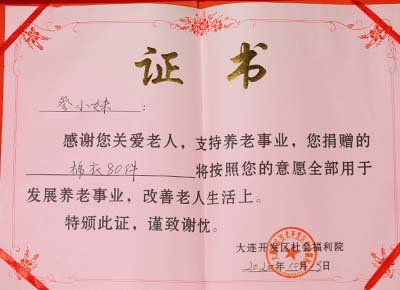 证书
参小妹:
感谢您关爱老人，支持养老事业，您捐赠的
棉衣80件将按照您的意愿全部用于
发展养老事业，改善老人生活上。
特颁此证，谨致谢忱。
大连开发区社会福利院
2020年10月5日